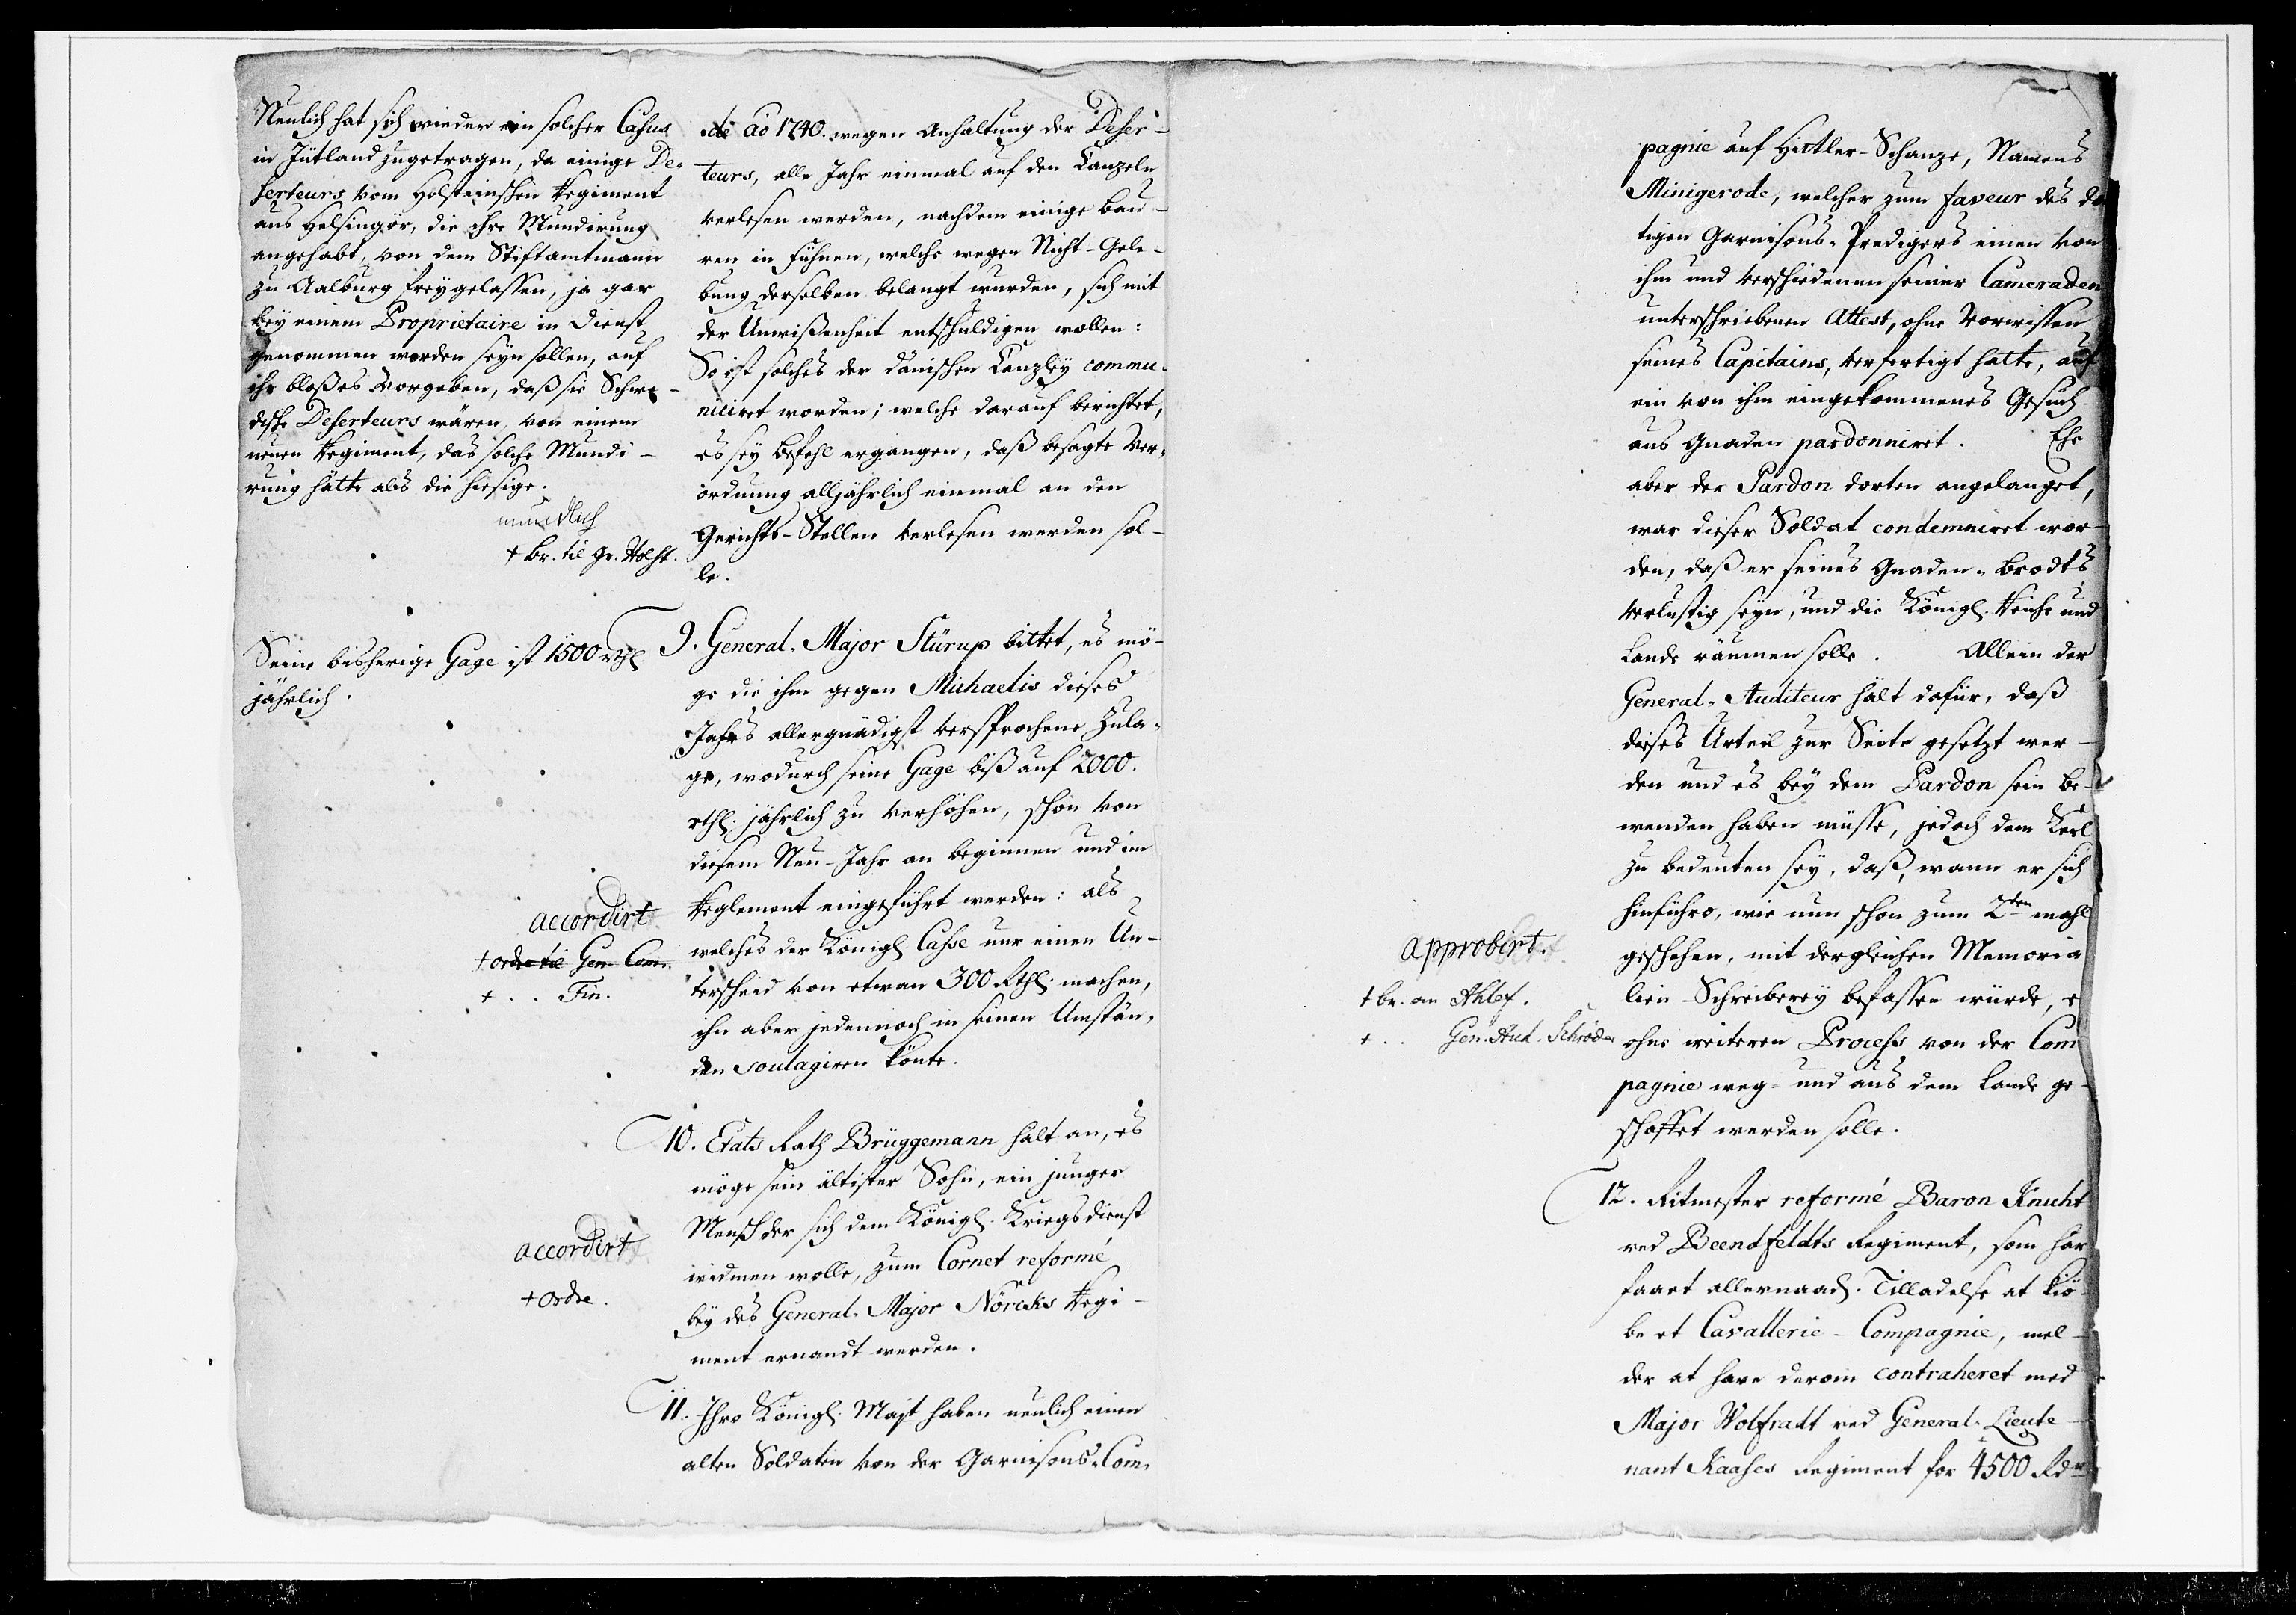 Neulich hat sich wieder ein solcher Casus
in Jütland zugetragen, da einige De-
serteurs vom Holsteinschen Regiment
aus Helsingör, die ihre Mundirung
angehabt, von dem Stiftamtmann
zu Aalburg freygelassen, ja gar
bey einem Proprietaire in Dienst
genommen worden seyn sollen, auf
ihr bloßes Vorgeben, daß sie Schwe-
dische Deserteurs wären, von einem
neuen Regiment, das solche Mundi-
rung hätte als die hiesige.
mündlich
+ br. til gr. Holst.
Seine bisherige Gage ist 1500 rthl
jährlich.
accordirt
+ ordre til Gen. Com.
+ . . Fin.
accordirt
+ ordre.
de ao 1740. wegen Anhaltung der Deser-
teurs, alle Jahr einmal auf den Canzeln
verlesen werden, nachdem einige Bau-
ren in Fühnen, welche wegen Nicht-Gele-
bung derselben belangt wurden, sich mit
der Unwißenheit entschuldigen wollen:
So ist solches der dänischen Canzley commu-
niciret worden; welche darauf berichtet,
es sey Befehl ergangen, daß besagte Ver-
ordnung alljährlich einmal an den
Gerichts-Stellen verlesen werden sol-
le.
9. General-Major Stürup bittet, es mö-
ge die ihm gegen Michaelis dieses
Jahrs allergnädigst versprochene Zula-
ge, wodurch seine Gage biß auf 2000.
rthl. jährlich zu verhöhen, schon von
diesem Neu-Jahr an beginnen und im
Reglement eingeführt werden: als
welches der Königl. Casse nur einen Un-
terscheid von etwan 300 Rthl. machen,
ihn aber jedennoch in seinen Umstän-
den soulagiren könte.
10. Etats Rath Brüggemann hält an, es
möge sein ältister Sohn, ein junger
Mensch der sich dem Königl. Kriegsdienst
widmen wolle, zum Cornet reformé
bey des General-Major Nörcks Regi-
ment ernandt werden.
11. Ihro Königl. Majt haben neulich einen
alten Soldaten von der Garnisons-Com-
approbirt.
+ br. an Ahlef.
+ . . Gen. Aud. Schröder
pagnie auf Hitler-Schanze, Namens
Minigerode, welcher zum faveur des do
tigen Garnisons-Predigers einen von
ihm und verschiedenen seiner Cameraden
unterschriebenen Attest, ohne Vorwissen
seines Capitains, verfertigt hatte, auf
ein von ihm eingekommenes Gesuch
aus Gnaden pardonniret. Ehe
aber der Pardon dorten angelanget,
war dieser Soldat condemniret wor-
den, daß er seines Gnaden-Brodts
verlustig seyn, und die Königl. Reiche und
Lande räumen solle. Allein der
General-Auditeur hält dafür, daß
dieses Urteil zur Seite gesetzt wer-
den und es bey dem Pardon sein be-
wenden haben müsse, jedoch dem Kerl
zu bedeuten sey, daß, wann er sich
hinführo, wie nun schon zum 2ten mahl
geschehen, mit dergleichen Memoria
lien-Schreiberey befassen würde, e
ohne weiteren Process von der Com
pagnie weg- und aus dem Lande ge-
schaffet werden solle.
12. Ritmester reformé Baron Knuht
ved Beenfeldts Regiment, som har
faaet allernaad. Tilladelse at kiö-
be et Cavallerie-Compagnie, mel-
der at have derom contraheret med
Major Wolfradt ved General-Lieute-
nant Kaases Regiment for 4500 Rdr